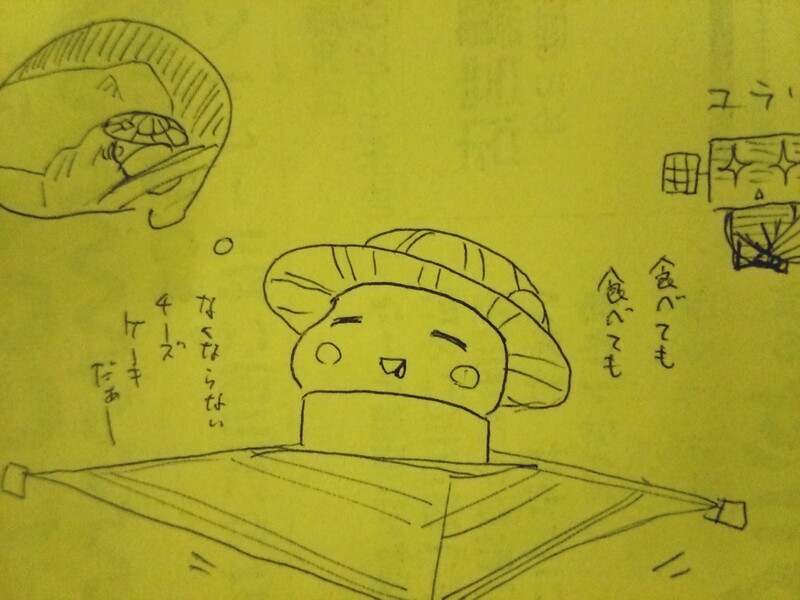 ユラリ
食べても
食べても
なくならない
チーズ
ケーキ
だぁー